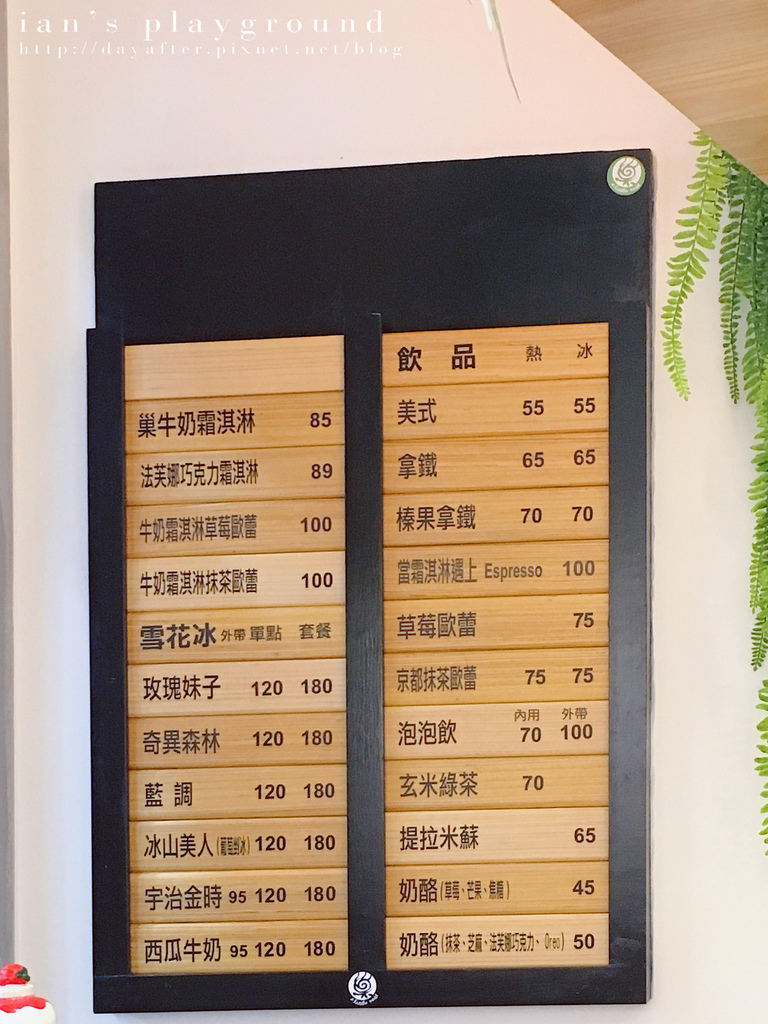 ian's playground
http://dayafter.pixnet.net/blog
巢牛奶霜淇淋 85
法芙娜巧克力霜淇淋 89
牛奶霜淇淋草莓歐蕾 100
牛奶霜淇淋抹茶歐蕾 100
雪花冰 外帶 單點 套餐
玫瑰妹子 120 180
奇異森林 120 180
藍調 120 180
冰山美人 120 180
宇治金時 95 120 180
西瓜牛奶 95 120 180
飲品 熱 冰
美式 55 55
拿鐵 65 65
榛果拿鐵 70 70
當霜淇淋遇上 Espresso 100
草莓歐蕾 75
京都抹茶歐蕾 75 75
內用 外帶
泡泡飲 70 100
玄米綠茶 70
提拉米蘇 65
奶酪(草莓、芒果、焦糖) 45
奶酪(抹茶、芝麻、法芙娜巧克力、Oreo) 50